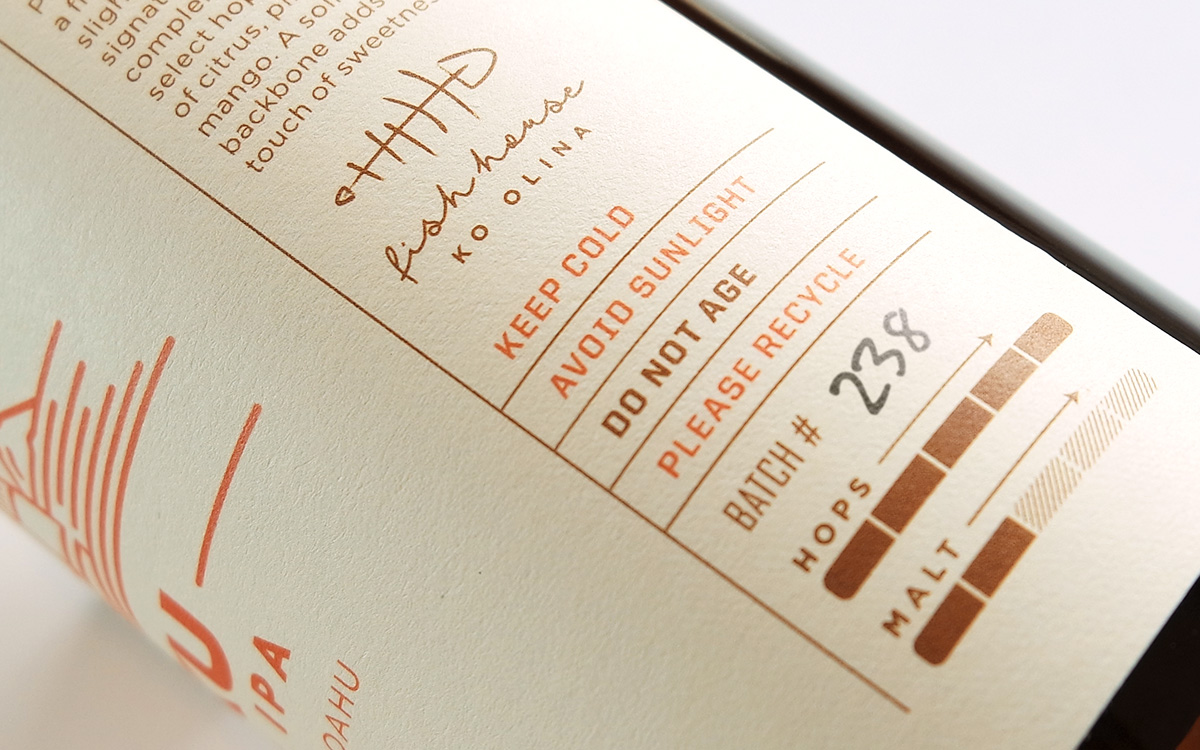 slig
signat
comple
select hop
of citrus, p
mango. A so
backbone adds
touch of sweetne
fish house
KO OLINA
KEEP COLD
AVOID SUNLIGHT
DO NOT AGE
PLEASE RECYCLE
BATCH # 238
HOPS
MALT
U
IPA
OAHU